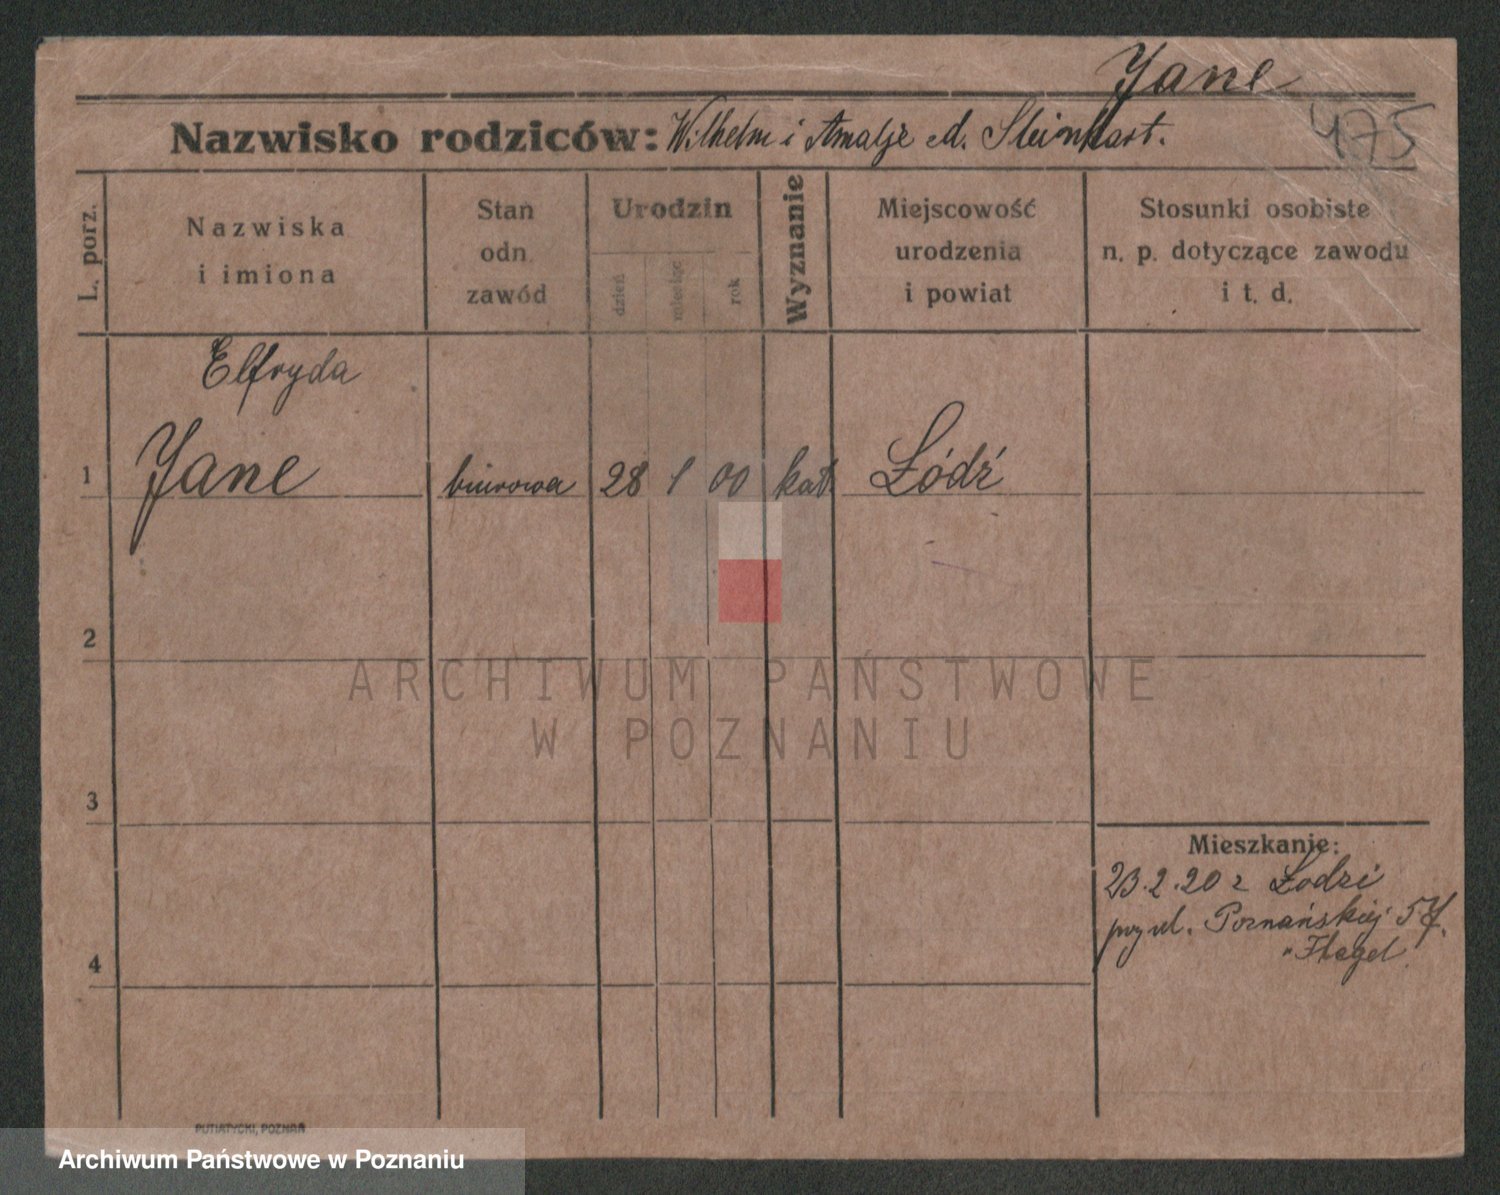 Jane
475
Nazwisko rodziców: Wilhelm i Amalje d. Steinhart.
L. porz.
Nazwiska
i imiona
Stan
odn
zawód
Urodzin
dzień
miesiąc
rok
Wyznanie
Miejscowość
urodzenia
i powiat
Stosunki osobiste
n. p. dotyczące zawodu
i t. d.
Elfryda
1 Jane biurowa 28 1 00 kat. Łódź
2
ARCHIWUM PAŃSTWOWE
W POZNANIU
3
Mieszkanie:
23.2.20 z Łodzi
przy ul. Poznańskiej 57.
4
PUTIATYCKI, POZNAŃ
Archiwum Państwowe w Poznaniu